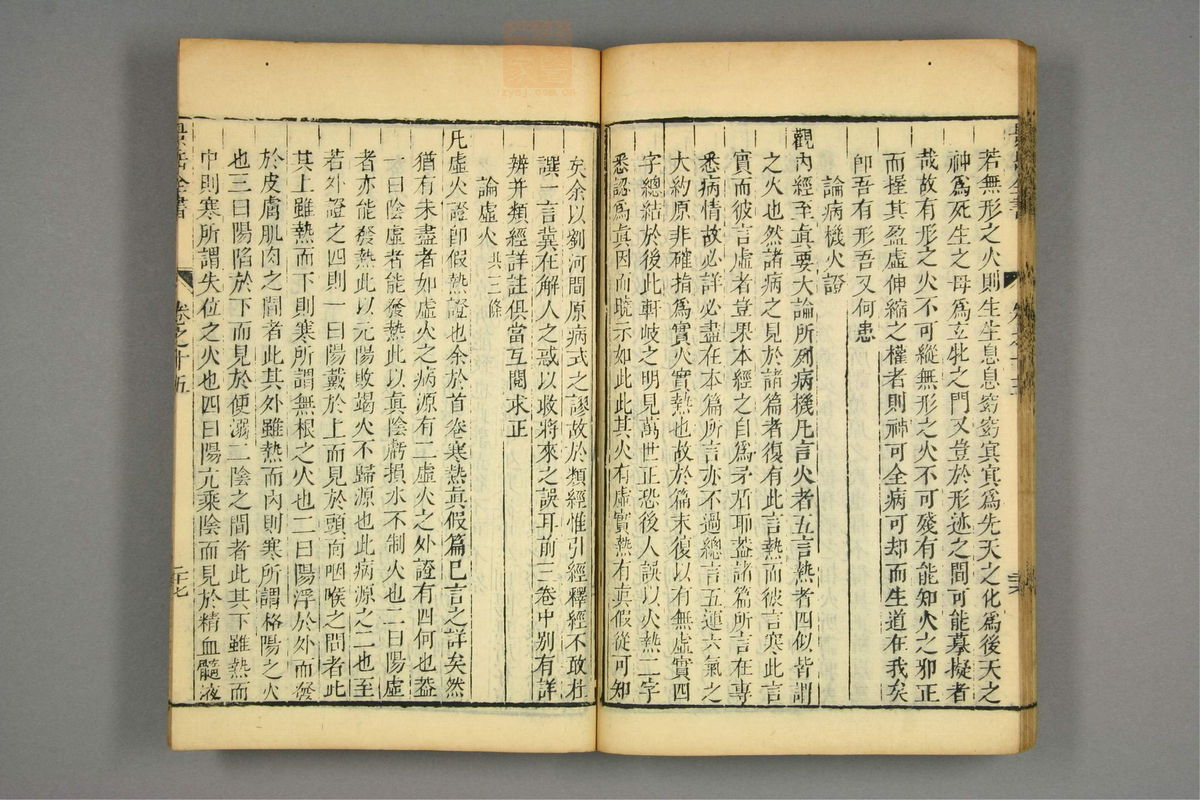 若無形之火則生生息息窈窈冥冥爲先天之化爲後天之
神爲死生之母爲玄牝之門又豈於形迹之間可能摹擬者
哉故有形之火不可縱無形之火不可殘有能知火之邪正
而握其盈虛伸縮之權者則神可全病可却而生道在我矣
卽吾有形吾又何患
論病機火證
觀內經至眞要大論所列病機凡言火者五言熱者四似皆謂
之火也然諸病之見於諸篇者復有此言熱而彼言寒此言
實而彼言虛者豈果本經之自爲矛盾耶葢諸篇所言在專
悉病情故必詳必盡在本篇所言亦不過總言五運六氣之
大約原非確指爲實火實熱也故於篇末復以有無虛實四
字總結於後此軒岐之明見萬世正恐後人誤以火熱二字
悉認爲眞因而曉示如此此其火有虛實熱有眞假從可知
矣余以劉河間原病式之謬故於類經惟引經釋經不敢杜
譔一言冀在解人之惑以收將來之誤耳前三卷中別有詳
辨并類經詳註俱當互閱求正
論虛火 共三條
凡虛火證卽假熱證也余於首卷寒熱眞假篇已言之詳矣然
猶有未盡者如虛火之病源有二虛火之外證有四何也葢
一曰陰虛者能發熱此以眞陰虧損水不制火也二曰陽虛
者亦能發熱此以元陽敗竭火不歸源也此病源之二也至
若外證之四則一曰陽戴於上而見於頭面咽喉之間者此
其上雖熱而下則寒所謂無根之火也二曰陽浮於外而發
於皮膚肌肉之間者此其外雖熱而內則寒所謂格陽之火
也三曰陽陷於下而見於便溺二陰之間者此其下雖熱而
中則寒所謂失位之火也四曰陽亢乘陰而見於精血髓液
景岳全書
卷之十五
二十七